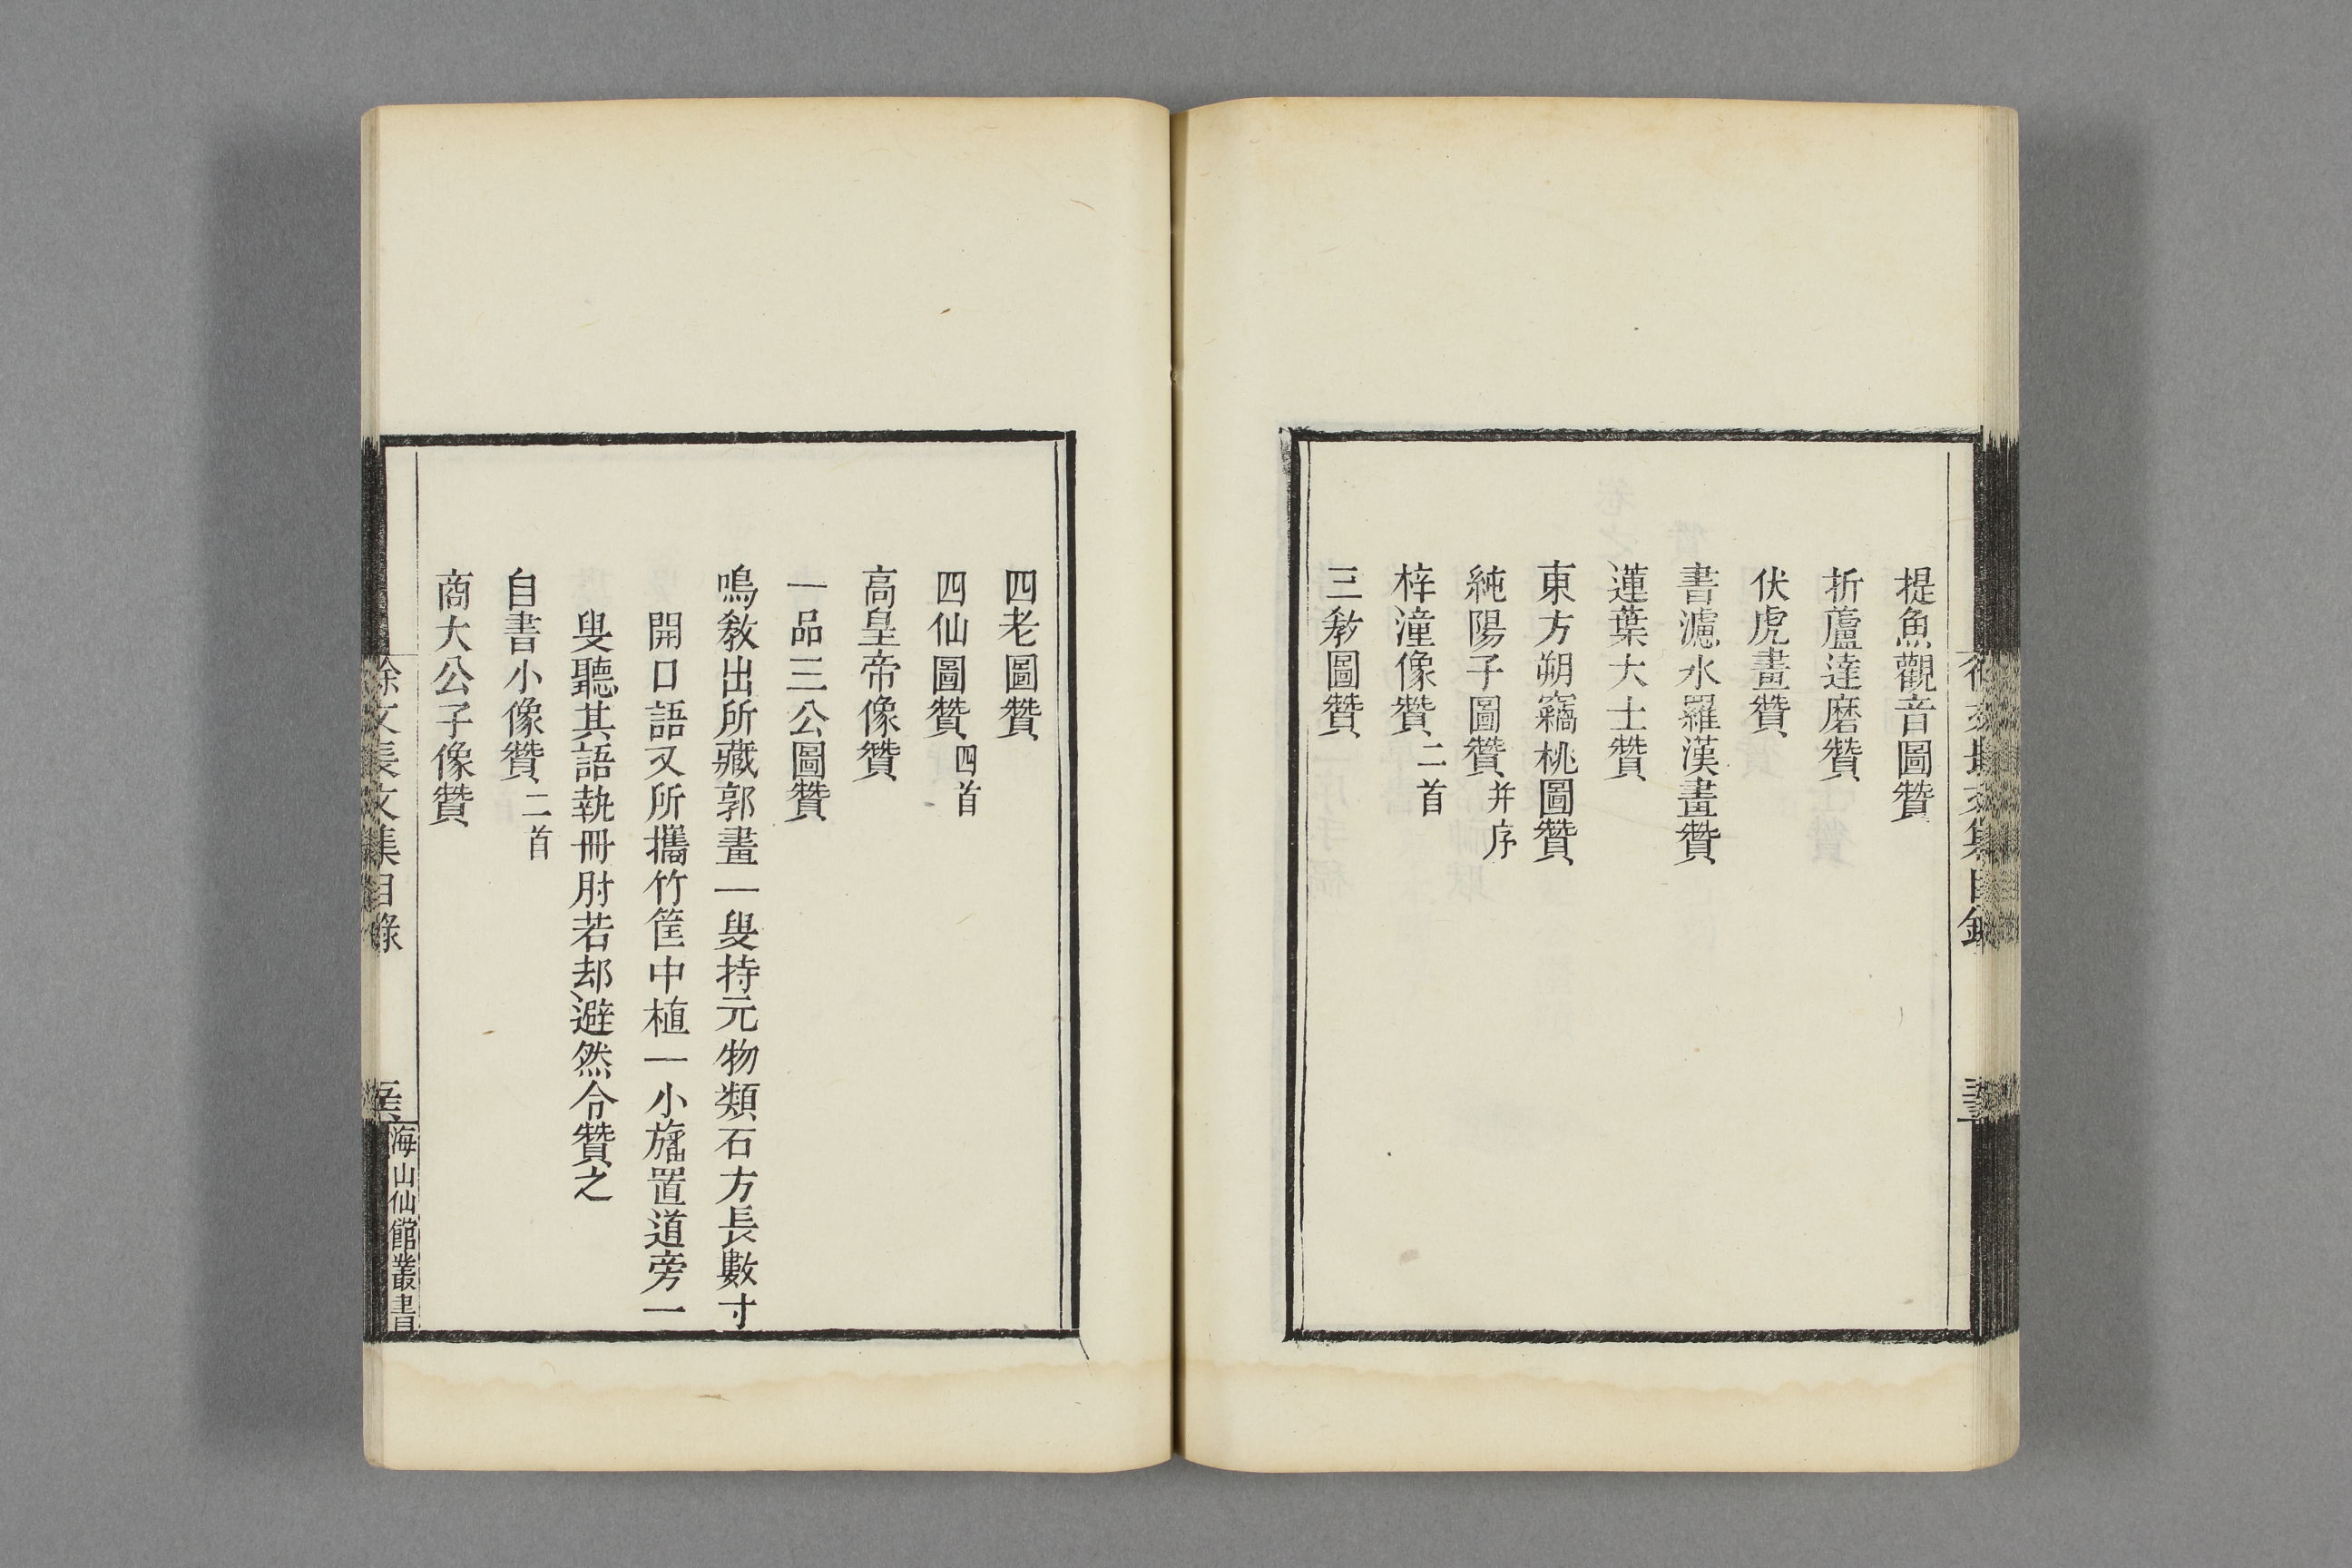 提魚觀音圖贊
折蘆達磨贊
伏虎畫贊
書濾水羅漢畫贊
蓮葉大士贊
東方朔竊桃圖贊
純陽子圖贊并序
梓潼像贊二首
三教圖贊
四老圖贊
四仙圖贊四首
高皇帝像贊
一品三公圖贊
鳴教出所藏郭畫一叟持元物類石方長數寸
開口語又所攜竹筐中植一小旛置道旁一
叟聽其語執冊肘若却避然令贊之
自書小像贊二首
商大公子像贊
徐文長文集目錄
海山仙館叢書